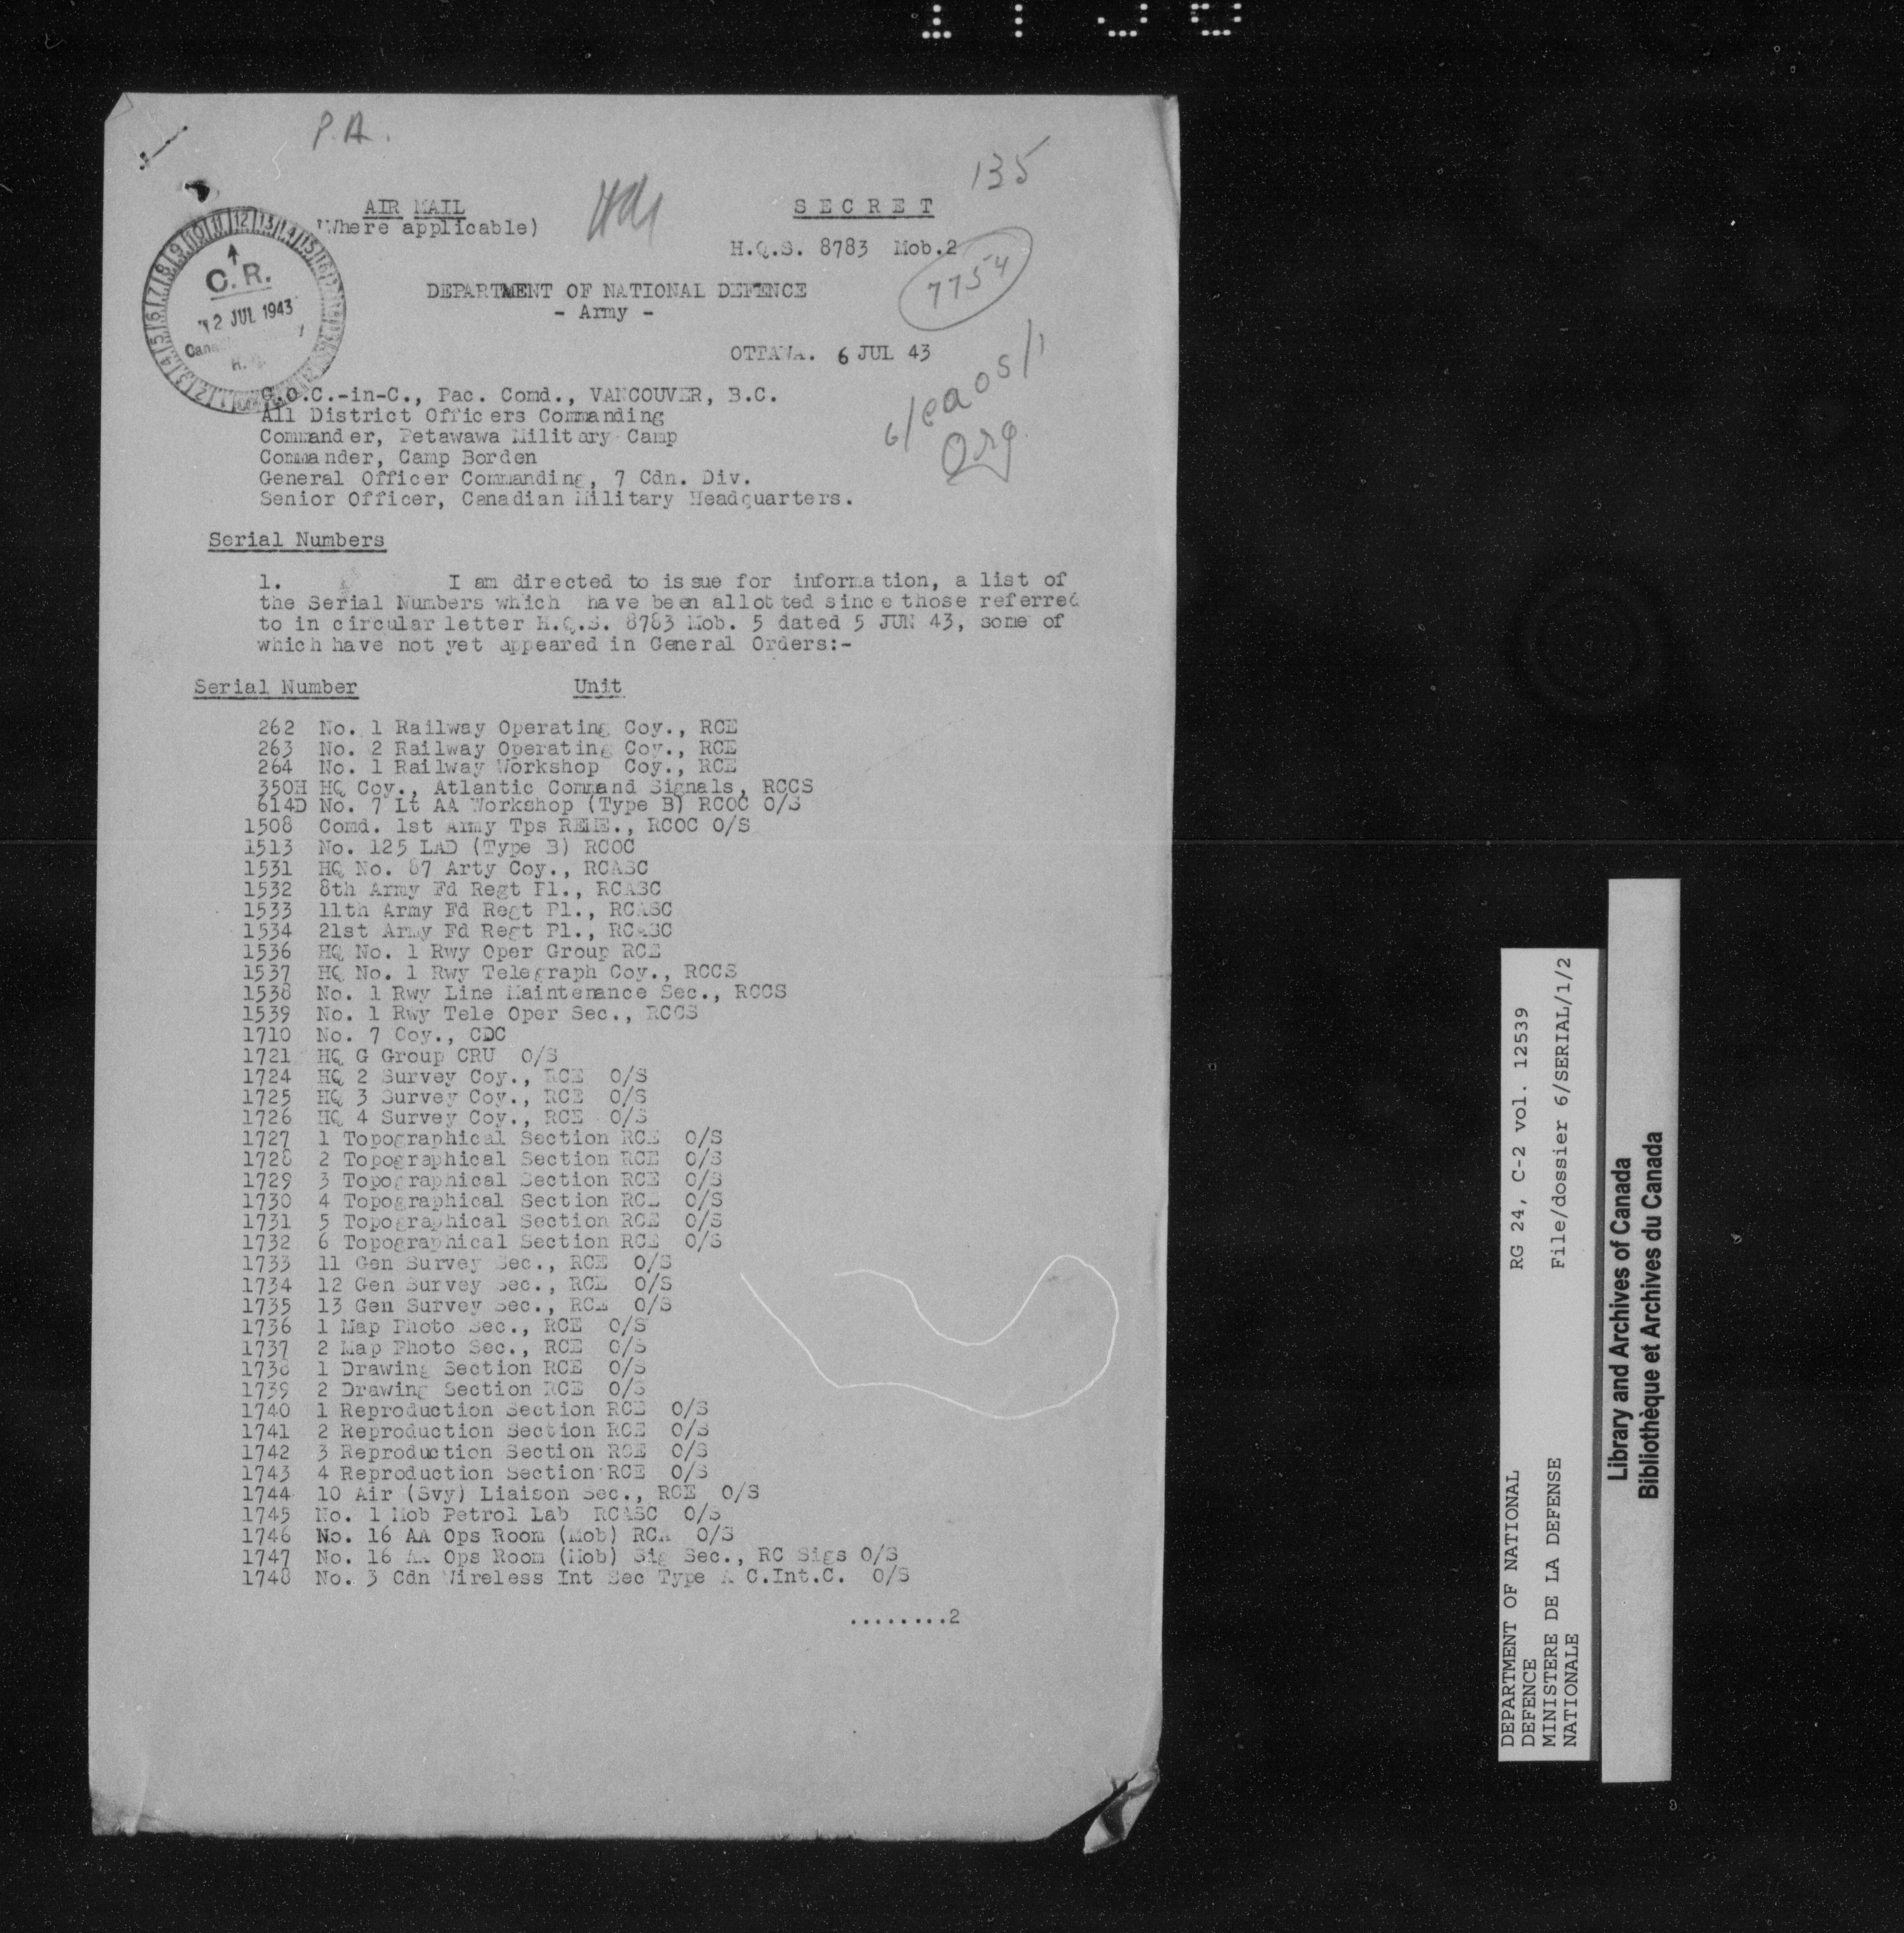 P.A.
135
AIR MAIL
(Where applicable)
SECRET
H.Q.S. 8783 Mob.2
7754
DEPARTMENT OF NATIONAL DEFENCE
- Army -
C.R.
12 JUL 1943
H.
OTTAWA. 6 JUL 43
Org
G.O.C.-in-C., Pac. Comd., VANCOUVER, B.C.
All District Officers Commanding
Commander, Petawawa Military Camp
Commander, Camp Borden
General Officer Commanding, 7 Cdn. Div.
Senior Officer, Canadian Military Headquarters.
Serial Numbers
1. I am directed to issue for information, a list of
the Serial Numbers which have been allotted since those referred
to in circular letter H.Q.S. 8783 Mob. 5 dated 5 JUN 43, some of
which have not yet appeared in General Orders:-
Serial Number Unit
262 No. 1 Railway Operating Coy., RCE
263 No. 2 Railway Operating Coy., RCE
264 No. 1 Railway Workshop Coy., RCE
350H HQ Coy., Atlantic Command Signals, RCCS
614D No. 7 Lt AA Workshop (Type B) RCOC O/S
1508 Comd. 1st Army Tps REME., RCOC O/S
1513 No. 125 LAD (Type B) RCOC
1531 HQ No. 87 Arty Coy., RCASC
1532 8th Army Fd Regt Pl., RCASC
1533 11th Army Fd Regt Pl., RCASC
1534 21st Army Fd Regt Pl., RCASC
1536 HQ No. 1 Rwy Oper Group RCE
1537 HQ No. 1 Rwy Telegraph Coy., RCCS
1538 No. 1 Rwy Line Maintenance Sec., RCCS
1539 No. 1 Rwy Tele Oper Sec., RCCS
1710 No. 7 Coy., CDC
1721 HQ G Group CRU O/S
1724 HQ 2 Survey Coy., RCE O/S
1725 HQ 3 Survey Coy., RCE O/S
1726 HQ 4 Survey Coy., RCE O/S
1727 1 Topographical Section RCE O/S
1728 2 Topographical Section RCE O/S
1729 3 Topographical Section RCE O/S
1730 4 Topographical Section RCE O/S
1731 5 Topographical Section RCE O/S
1732 6 Topographical Section RCE O/S
1733 11 Gen Survey Sec., RCE O/S
1734 12 Gen Survey Sec., RCE O/S
1735 13 Gen Survey Sec., RCE O/S
1736 1 Map Photo Sec., RCE O/S
1737 2 Map Photo Sec., RCE O/S
1738 1 Drawing Section RCE O/S
1739 2 Drawing Section RCE O/S
1740 1 Reproduction Section RCE O/S
1741 2 Reproduction Section RCE O/S
1742 3 Reproduction Section RCE O/S
1743 4 Reproduction Section RCE O/S
1744 10 Air (Svy) Liaison Sec., RCE O/S
1745 No. 1 Mob Petrol Lab RCASC O/S
1746 No. 16 AA Ops Room (Mob) RCA O/S
1747 No. 16 AA Ops Room (Mob) Sig Sec., RC Sigs O/S
1748 No. 3 Cdn Wireless Int Sec Type A C.Int.C. O/S
........2
DEPARTMENT OF NATIONAL
DEFENCE
MINISTERE DE LA DEFENSE
NATIONALE
RG 24, C-2 vol. 12539
File/dossier 6/SERIAL/1/2
Library and Archives of Canada
Bibliothèque et Archives du Canada